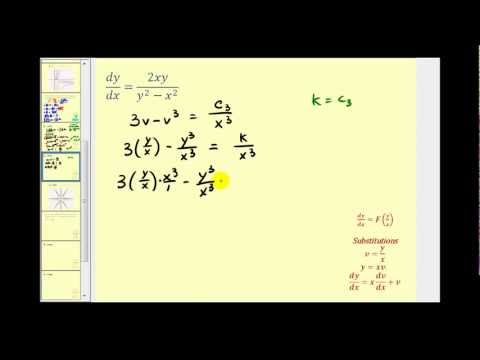 dy/dx = 2xy/(y² − x²)
3v − v³ = C₃/x³
K = C₃
3(y/x) − y³/x³ = K/x³
3(y/x) · x³/1 − y³/x³
dy/dx = F(y/x)
Substitutions
v = y/x
y = xv
dy/dx = x dv/dx + v